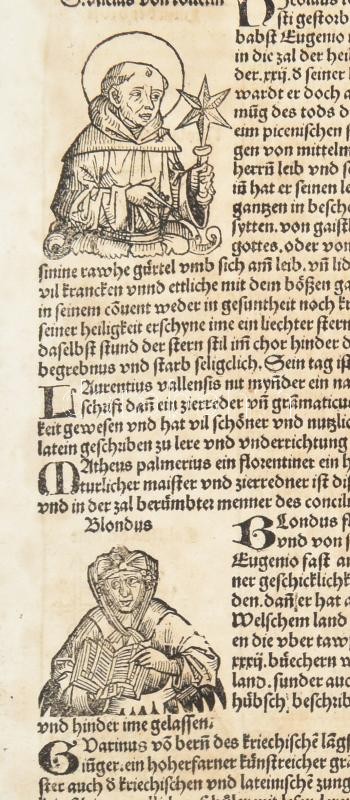 S. Nicolaus von tolentin
Nicolaus
sti gestorb
babst Eugenio
in die zal der hei
der. xxij. d̕ seiner
wardt er doch a
müg des tods d
eim picenischen s
gen von mittelm
herrn̄ leib vnd se
iū hat er seinen le
gantzen in besche
sytten. von gaistl
gottes. oder von
sinine rawhe gürtel vmb sich am̄ leib. vn̄ lid
vil krancken vnnd ettliche mit dem bößen ga
in seinem cōuent weder in gesuntheit noch kr
seiner heiligkeit erschyne ime ein liechter stern
daselbst stund der stern stil im̄ chor hinder d
begrebnus vnd starb seligclich. Sein tag ist
LAurentius vallensis nit mynder ein na
schrift dan̄ ein zierreder vn̄ gramaticus
keit gewesen vnd hat vil schöner vnd nutzlic
latein geschriben zu lere vnd vnderrichtung
MAtheus palmerius ein florentiner ein h
turlicher maister vnd zierredner ist di
vnd in der zal berümbter menner des concili
Blondus
BLondus f
vnd von s
Eugenio fast an
ner geschicklichk
den. dan̄ er hat a
Welschem land
en die vber taw
xxxij. büechern w
land. sunder auc
hübsch beschrib
vnd hinder ime gelassen.
GVarinus vō bern̄ des kriechischē lāgs
iünger. ein hoherfarner künstreicher gr
ster auch d̕ kriechischen vnd lateinischē zung